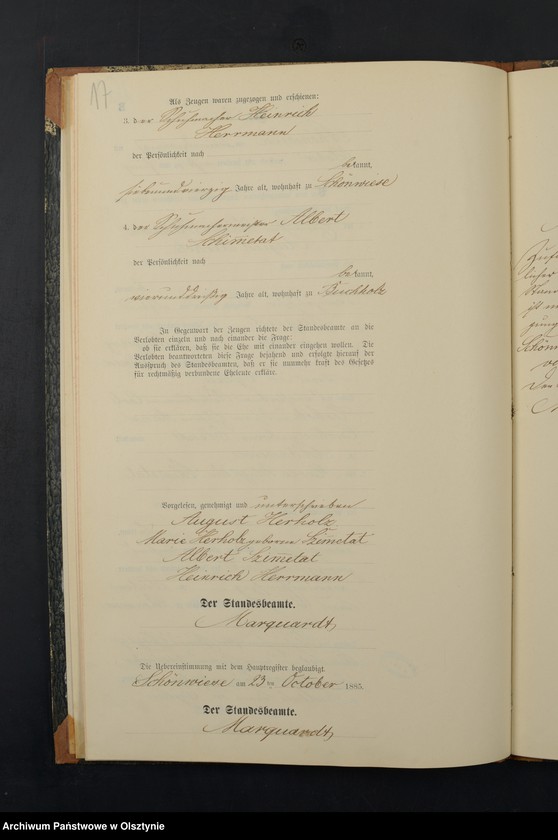 17
Als Zeugen waren zugezogen und erschienen:
3. der Schuhmacher Heinrich
Herrmann
der Persönlichkeit nach
bekannt,
siebenundvierzig Jahre alt, wohnhaft zu Schönwiese
4. der Schuhmachermeister Albert
Szimetat
der Persönlichkeit nach
bekannt,
vierunddreißig Jahre alt, wohnhaft zu Buchholz
In Gegenwart der Zeugen richtete der Standesbeamte an die
Verlobten einzeln und nach einander die Frage:
ob sie erklären, daß sie die Ehe mit einander eingehen wollen. Die
Verlobten beantworteten diese Frage bejahend und erfolgte hierauf der
Ausspruch des Standesbeamten, daß er sie nunmehr kraft des Gesetzes
für rechtmäßig verbundene Eheleute erkläre.
Vorgelesen, genehmigt und unterschrieben
August Herholz.
Marie Herholz geborene Szimetat
Albert Szimetat
Heinrich Herrmann
Der Standesbeamte.
Marquardt,
Die Uebereinstimmung mit dem Hauptregister beglaubigt.
Schönwiese am 23 ten October 1885.
Der Standesbeamte.
Marquardt,
Schön
Archiwum Państwowe w Olsztynie